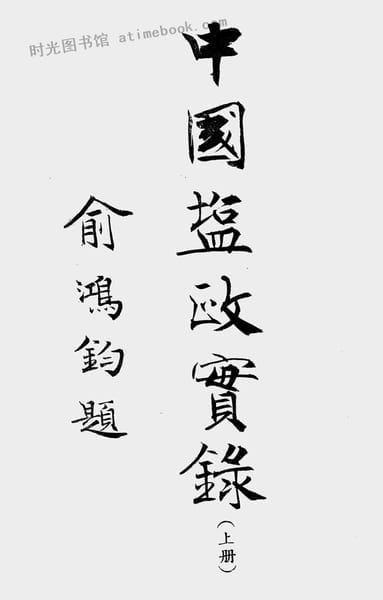 时光图书馆 atimebook.com
中國塩政實錄(上册)
俞鴻鈞題